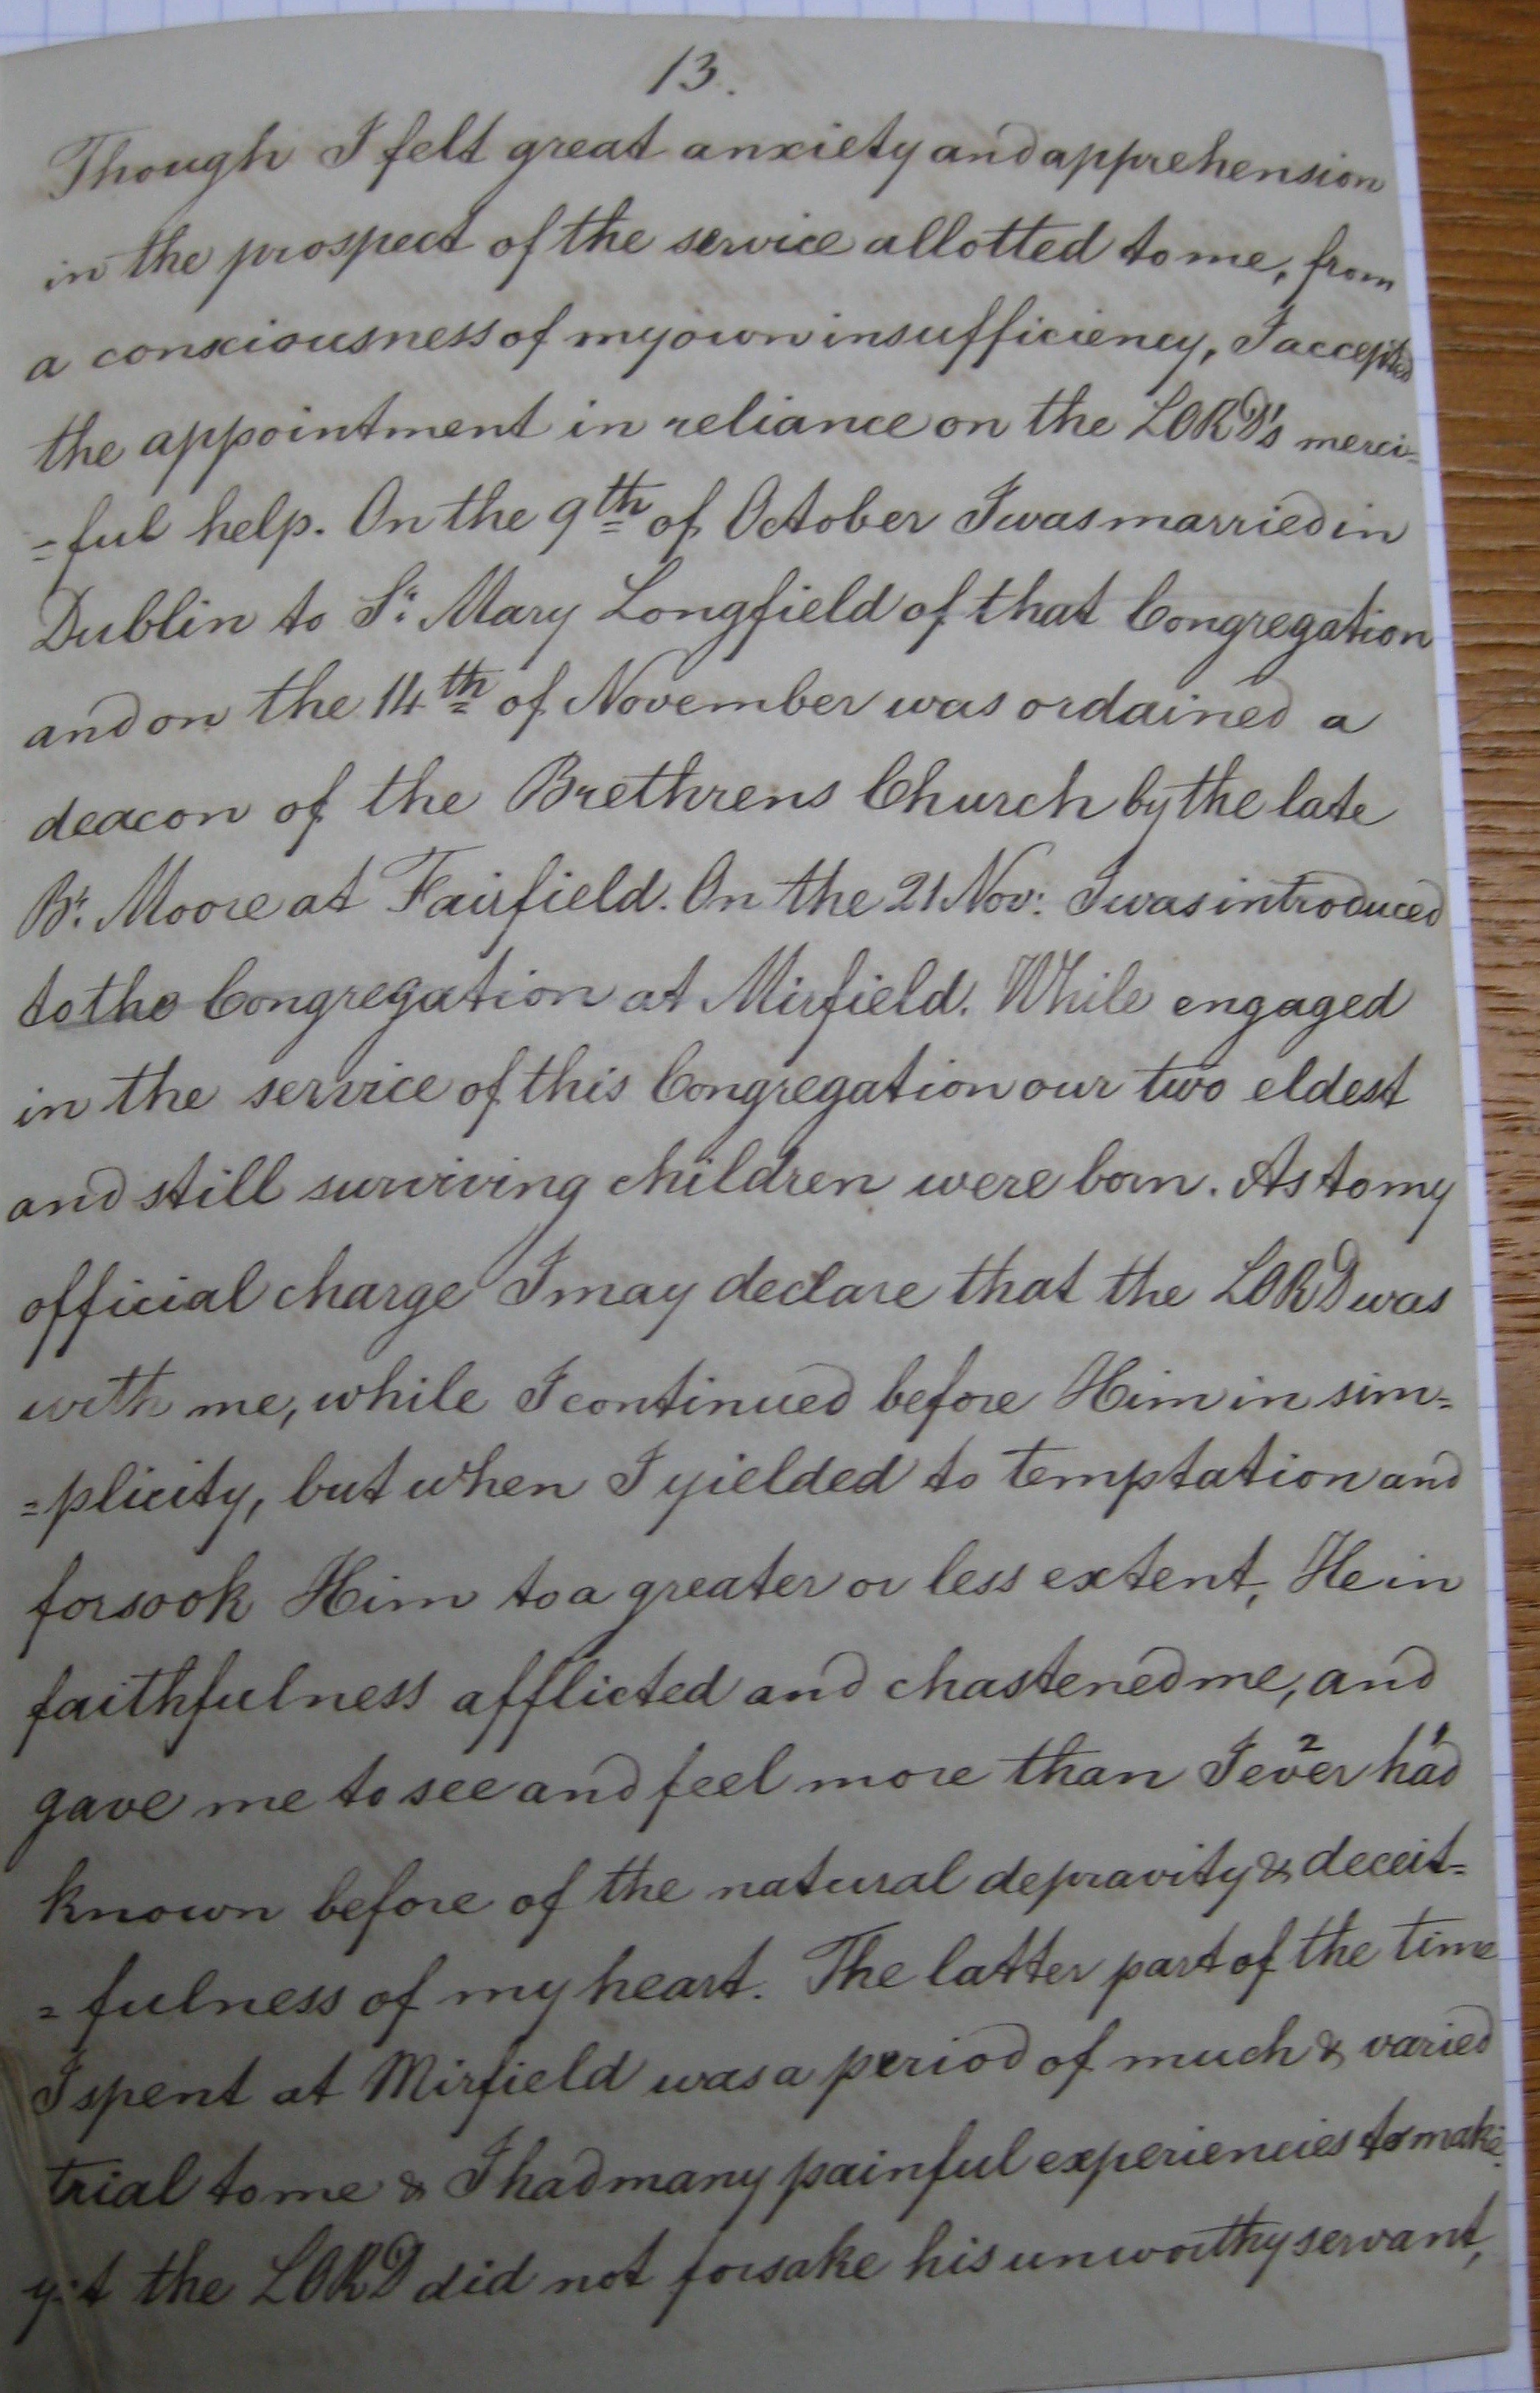 13.
Though I felt great anxiety and apprehension
in the prospect of the service allotted to me, from
a consciousness of my own insufficiency, I accepted
the appointment in reliance on the LORD's merci=
=ful help. On the 9th of October I was married in
Dublin to Sr. Mary Longfield of that Congregation
and on the 14th of November was ordained a
deacon of the Brethrens Church by the late
Br. Moore at Fairfield. On the 21 Nov: I was introduced
to the Congregation at Mirfield. While engaged
in the service of this Congregation our two eldest
and still surviving children were born. As to my
official charge I may declare that the LORD was
with me, while I continued before Him in sim=
=plicity, but when I yielded to temptation and
forsook Him to a greater or less extent, He in
faithfulness afflicted and chastened me, and
gave me to see and feel more than I ever 2 had 1
known before of the natural depravity & deceit=
=fulness of my heart. The latter part of the time
I spent at Mirfield was a period of much & varied
trial to me & I had many painful experiencies to make
yet the LORD did not forsake his unworthy servant,